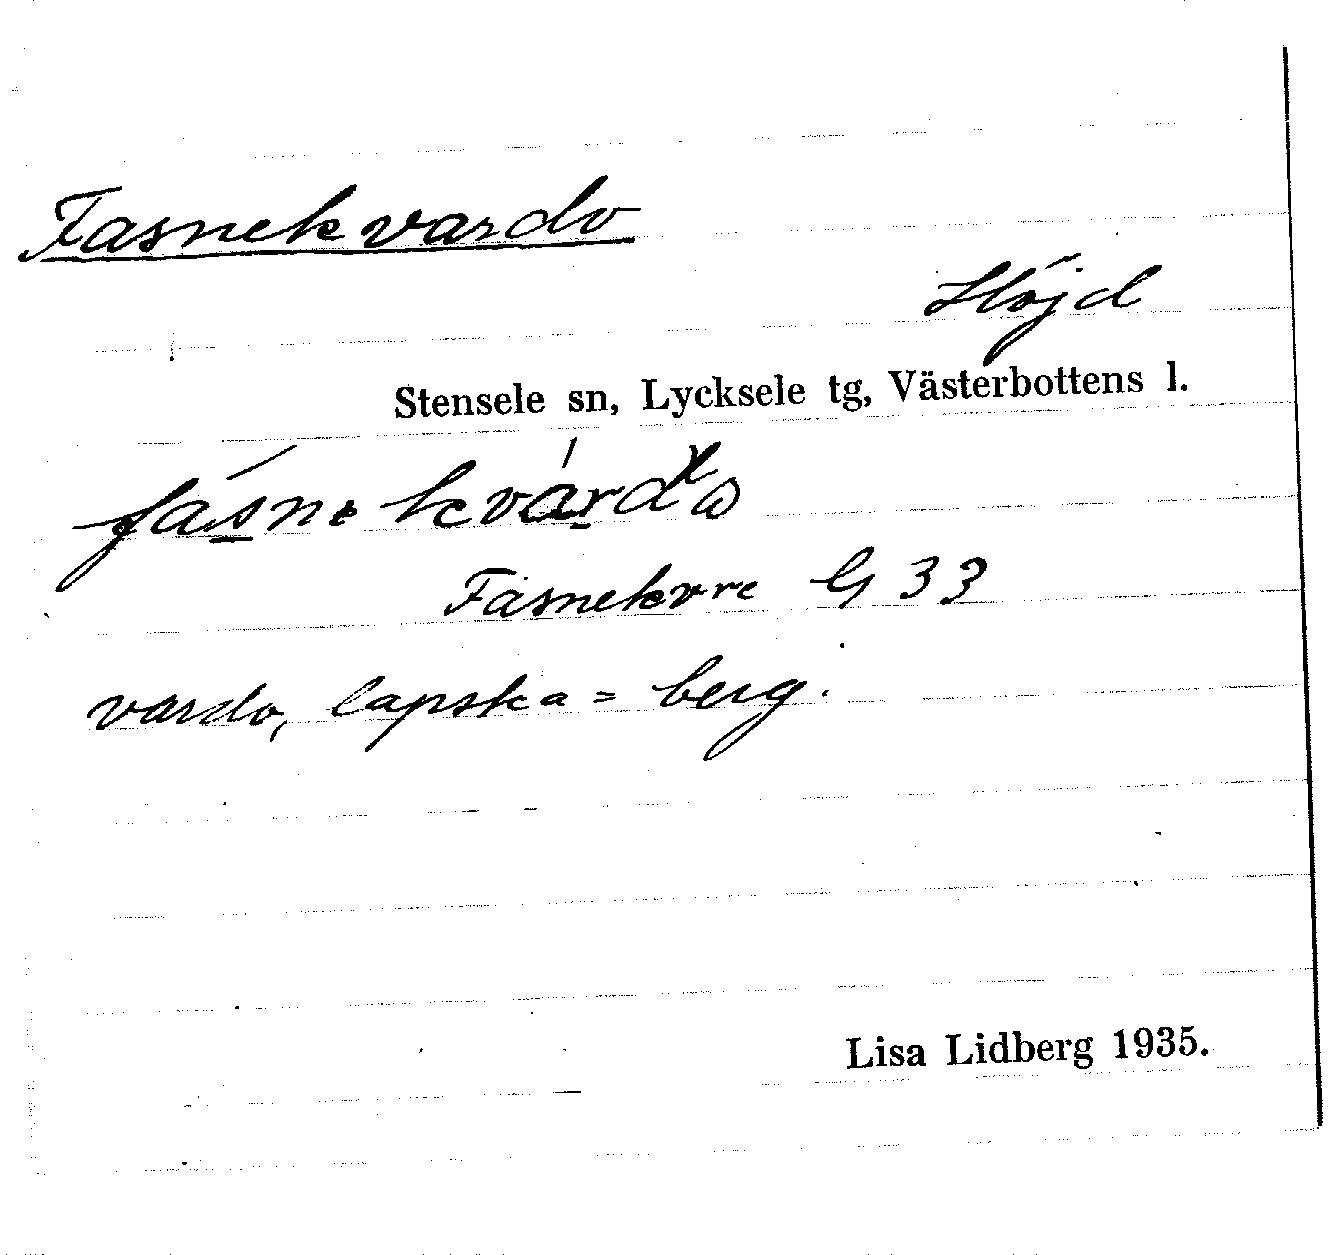 Fasnekvardo
Höjd
Stensele sn, Lycksele tg, Västerbottens l.
Fasnekvre G 33
vardo, lapska = berg.
Lisa Lidberg 1935.